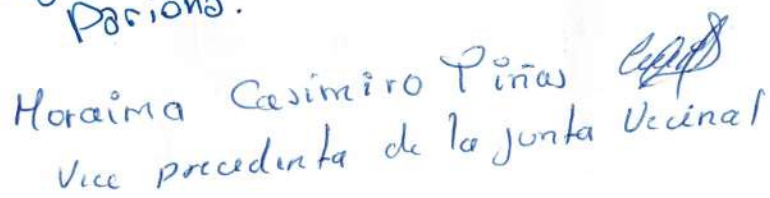 Pariona.
Moraima Casimiro Piñas
Vice precedenta de la junta Vecinal